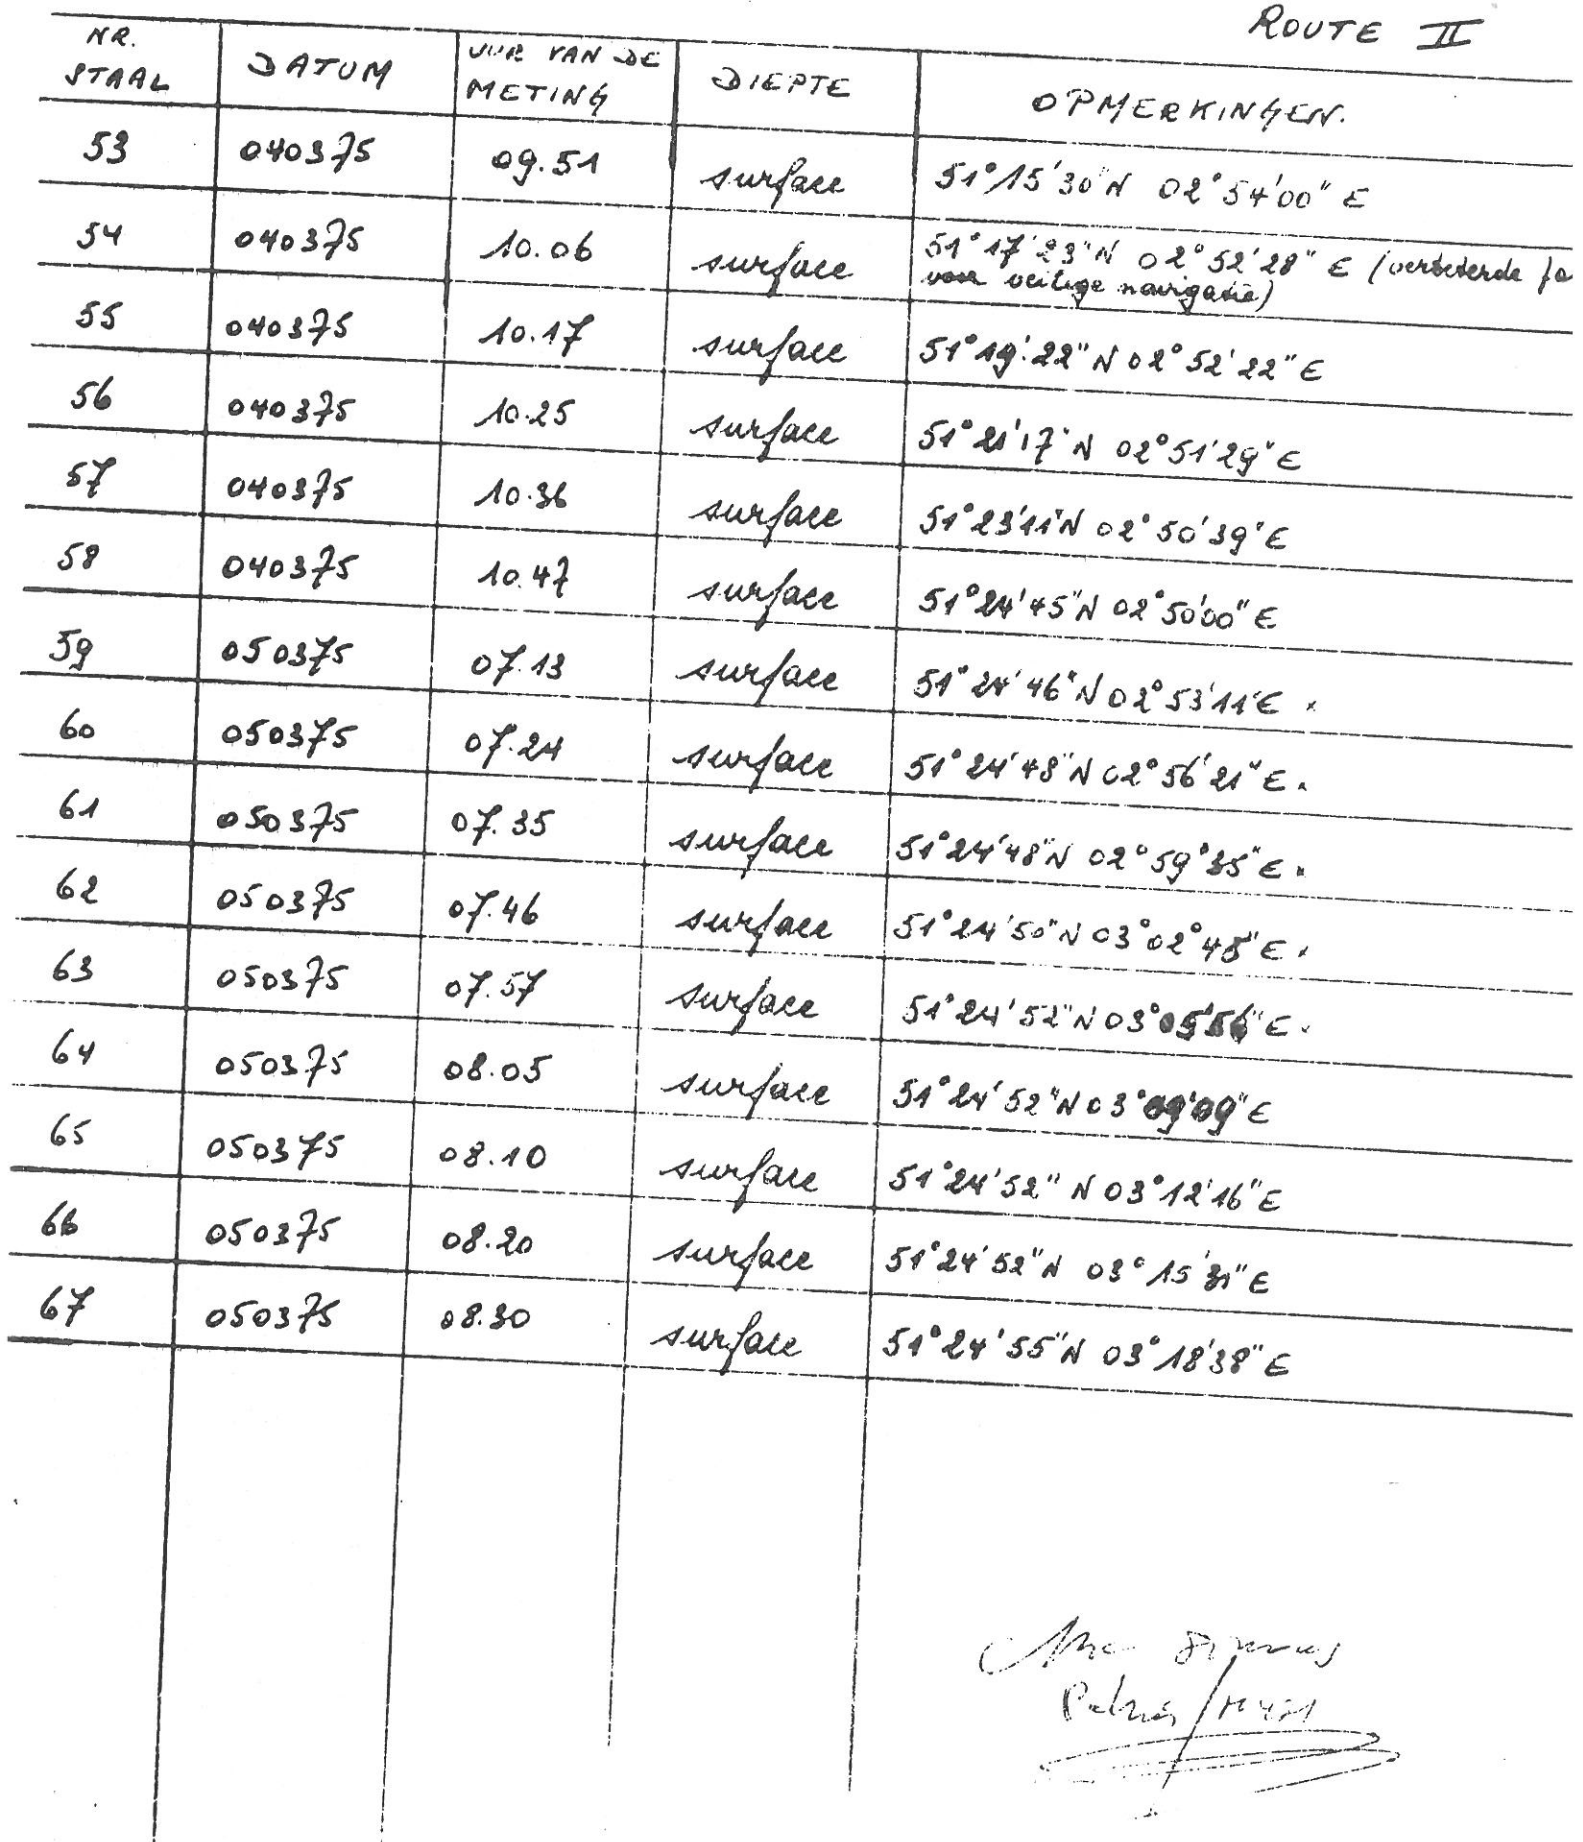 ROUTE II
NR. STAAL DATUM UUR VAN DE METING DIEPTE OPMERKINGEN.
53 040375 09.51 surface 51°15'30"N 02°54'00" E
54 040375 10.06 surface 51°17'23"N 02°52'28" E (verbeterde
voor veilige navigatie)
55 040375 10.17 surface 51°19'22"N 02°52'22" E
56 040375 10.25 surface 51°21'17"N 02°51'29" E
57 040375 10.36 surface 51°23'11"N 02°50'39" E
58 040375 10.47 surface 51°24'45"N 02°50'00" E
59 050375 07.13 surface 51°24'46"N 02°53'11" E
60 050375 07.24 surface 51°24'48"N 02°56'21" E
61 050375 07.35 surface 51°24'48"N 02°59°35" E
62 050375 07.46 surface 51°24'50"N 03°02°48" E
63 050375 07.57 surface 51°24'52"N 03°05'56" E
64 050375 08.05 surface 51°24'52"N 03°09'09" E
65 050375 08.10 surface 51°24'52" N 03°12'16" E
66 050375 08.20 surface 51°24'52"N 03°15'31" E
67 050375 08.30 surface 51°24'55"N 03°18'38" E